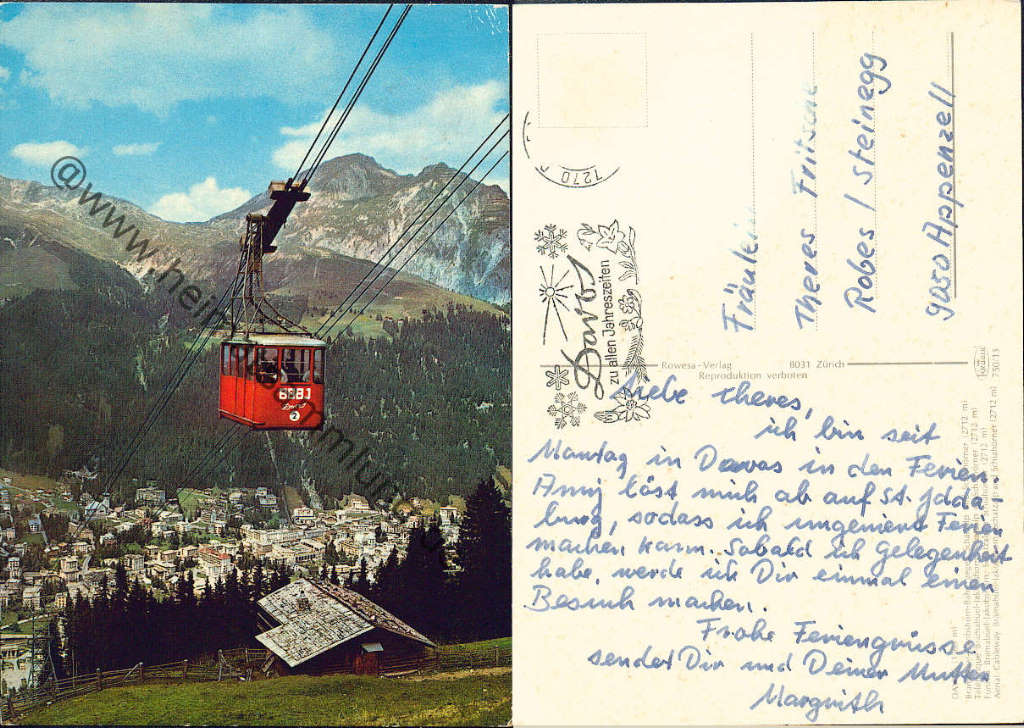 BBBJ
Davos
2
1270
Davos
zu allen Jahreszeiten
Fräulein
Theres Fritsche
Robes / Steinegg
9050 Appenzell
Rowesa-Verlag 8031 Zürich
Reproduktion verboten
Liebe Theres,
ich bin seit
Montag in Davos in den Ferien
Anny löst mich ab auf St. Idda
burg, sodass ich ungeniert Ferien
machen kann. Sobald ich Gelegenheit
habe, werde ich Dir einmal einen
Besuch machen.
Frohe Feriengrüsse
sendet Dir und Deiner Mutter
Margrith